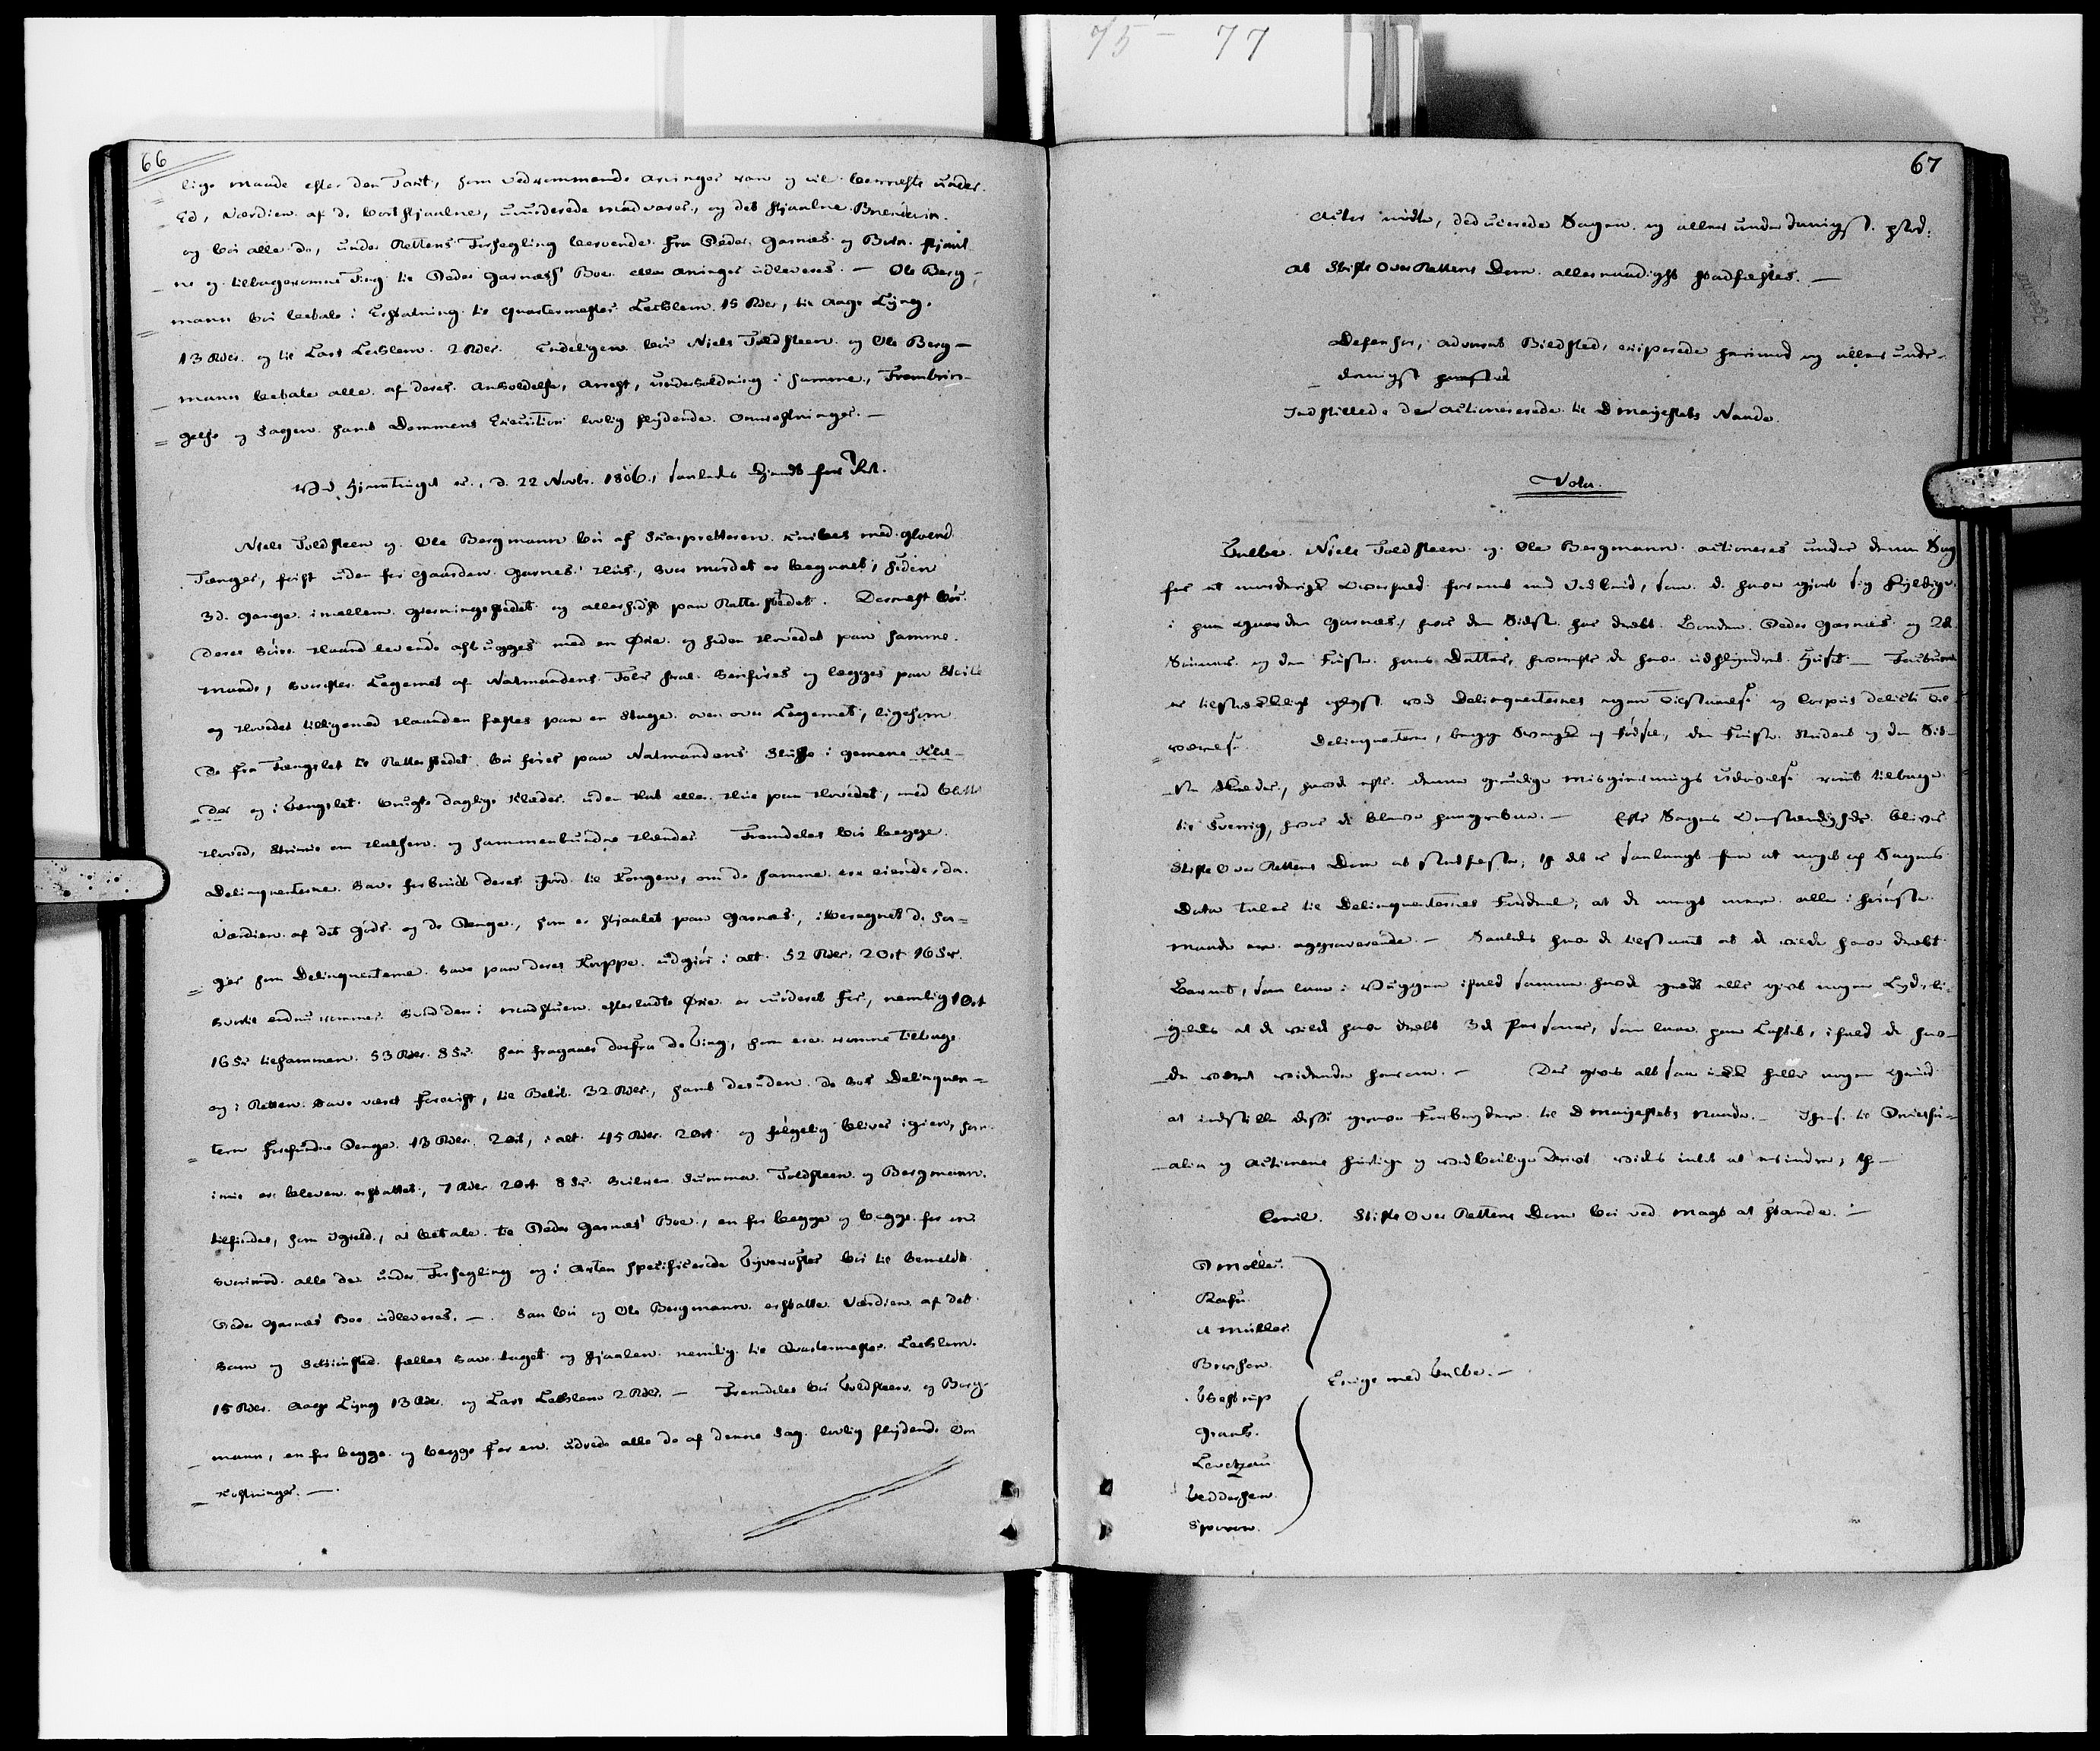 75 - 77
66
lige maade efter den Taxt, som vedkommende Arvinger kan og vil bekræfte under
Ed, Værdien af de bortstjaalne, uvurderede Madvarer, og det stjaalne Brændeviin.
og bør alle de, under Rettens Forsegling beroende fra Peder Garnæs og Børn stjaal
ne og tilbagekomne Ting til Peder Garnæs's Boe eller Arvinger udleveres. — Ole Berg-
mann bør betale i Erstatning til Quartermester Lechlem 15 Rdlr, til Aage Lyng
13 Rdlr. og til Lars Lechlem 2 Rdlr. Endeligen bør Niels Toldsteen og Ole Berg-
mann betale alle af deres Anholdelse, Arrest, Underholdning i samme, Frembrin-
gelse og Sagen samt Dommens Execution lovlig flydende Omkostninger. —
Ved Hjemtinget er, d. 22 Novbr. 1806, saaledes kjendt for Ret.
Niels Toldsteen og Ole Bergmann bør af Skarpretteren knibes med gloend
Tænger, først uden for Gaarden Garnes' Huus, hvor Mordet er begaaet, siden
3de Gange imellem Gierningsstedet og allersidst paa Retterstedet. Dernæst bør
deres høire Haand levende afhugges med en Øxe og siden Hovedet paa samme
Maade, hvorefter Legemet af Natmandens Folk skal henføres og lægges paa Steile
og Hovedet tilligemed Haanden fæstes paa en Stage oven over Legemet, ligesom
de fra Fængslet til Retterstedet bør føres paa Natmandens Sluffe i gemene Klæ-
der og i Fængslet brugte daglige Klæder uden Hat eller Hue paa Hovedet, med blottet
Hoved, Strikke om Halsen og sammenbundne Hænder Fremdeles bør begge
Delinquenterne have forbrudt deres Jord til Kongen, om de samme ere eiende, da
Værdien af det Gods og de Penge, som er stjaalet paa Garnæs, iberegnet de Sa-
ger som Delinquenterne have paa deres Kroppe udgiør i alt 52 Rdlr. 2 Ort 16 Sk.
hvortil endnu kommer hvad den i Madstuen efterladte Øxe er vurderet for, nemlig 1 Ort
16 Sk. tilsammen 53 Rdlr. 8 Sk. saa fragaaer derfra de Ting, som ere komne tilbage
og i Retten have været foreviist, til Beløb 32 Rdlr., samt desuden de hos Delinquen-
tern forefundne Penge 13 Rdlr. 2 Ort, i alt 45 Rdlr. 2 Ort og følgelig bliver igien, som
ikke er bleven erstattet, 7 Rdlr. 2 Ort 8 Sk. hvilken Summa Toldsteen og Bergmann
tilfindes, som Igield, at betale til Peder Garnæs' Boe, en for begge og begge for en
hvorimod alle der under Forsegling og i Acten specificerede Tyvekoster bør til bemeldte
Peder Garnæs' Boe udleveres. — Saa bør og Ole Bergmann erstatte Værdien af det
han og fælles have taget og stjaalen nemlig til Quartermester Lechlem
15 Rdlr. Aage Lyng 13 Rdlr. og Lars Lechlem 2 Rdlr. — Fremdeles bør Toldsteen og Berg-
mann, en for begge og begge for en udrede alle de af denne Sag lovlig flydende Om
kostninger. —.
67
Actor mødte, deducerede Sagen og allerunderdanigst paastod:
at Stifts Over Rettens Dom allernaadigst stadfæstes. —
Defensor, Advocat Bildsted, exiperede herimod og allerunder-
danigst
Indstillede de Actionerede til D Majestæts Naade.
Vota.
Bulbe. Niels Toldsteen og Ole Bergmann actioneres under denne Sag
for et morderisk Overfald foruden med Ildbrand, som de have gjort sig skyldige
i paa Gaarden Garnæs, hvor den Sidste har dræbt Bonden Peder Garnæs og 2de
Sønner og den Første hans Datter, hvorefter de have udplyndret Huset —
er tilstrækkeligt oplyst ved Delinquenternes egen Tilstaaelse og Corpus delicti Til-
værelse. Delinquenterne, begge Svenske af Fødsel, den Første Student og den Sid-
ste Skrædder, havde efter denne gruelige Misgiernings Udøvelse vendt tilbage
til Sverrig, hvor de bleve paagrebne. — Efter Sagens Omstændigheder bliver
Stifts Over Rettens Dom at stadfæste, thi det er saa langt fra at noget af Sagens
Data taler til Delinquenternes Fordeel, at de meget mere alle i høieste
Maade ere aggraverende. — Saaledes have de tilstaaet at de vilde have dræbt
Barnet, som laae i Vuggen ifald samme havde grædt eller givet nogen Lyd, li-
geledes at de vilde have dræbt 3de Personer, som laae paa Loftet, ifald de hav-
de været vidende herom. — Der gives altsaa ikke heller nogen Grund
at indstille disse grove Forbrydere til D Majestæts Naade. — Ihens. til Privatsø-
alia og Actionens hurtige og vedbørlige Drivt vides intet at erindre, thi —
Conil. Stifts Over Rettens Dom bør ved Magt at stande. —
P Møller.
Rafn
A Müller
Bornsen
Westrup
Gram
Levetzau
Feddersen
Eenige med Bulbe. —